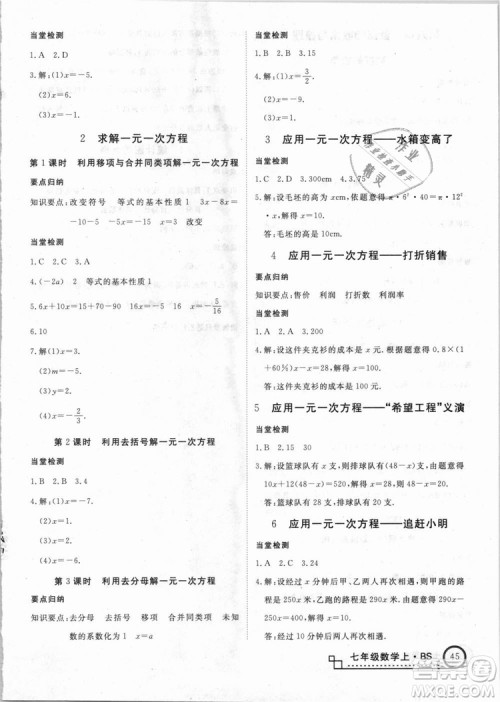 当堂检测
1.A 2.D
3.解：(1)x=-5.
(2)x=-6.
(3)x=-1.
2 求解一元一次方程
第1课时 利用移项与合并同类项解一元一次方程
要点归纳
知识要点：改变符号 等式的基本性质1 3x-8x=
-10-5 -5x=-15 x=3
当堂检测
1.C 2.C 3.A
4.(-2a) 2 等式的基本性质1
5.6x+10x=15+70-90 16x=-5 x=-5/16
6.10
7.解：(1)x=4.
(2)m=5.
(3)x=1.
(4)x=-2/3.
第2课时 利用去括号解一元一次方程
当堂检测
1.D 2.D 3.B 4.0
5.解：(1)x=6.
(2)x=1.
(3)x=0.
第3课时 利用去分母解一元一次方程
要点归纳
知识要点：去分母 去括号 移项 合并同类项 未知
数的系数化为1 x=a
当堂检测
1.B 2.B 3.15
4.解：(1)x=3/2.
(2)x=-9.
3 应用一元一次方程——水箱变高了
当堂检测
1.C 2.A 3.300cm 4.3.75
5.解：设毛坯的高为xcm,依题意得π·6²·40=π·12²
·x.解得x=10.
答：毛坯的高是10cm.
4 应用一元一次方程——打折销售
要点归纳
知识要点：售价 利润 打折数 利润率
当堂检测
1.A 2.A 3.200
4.解：设这件夹克衫的成本是x元.依题意得0.8×(1
+60%)x-x=
答：这件夹克衫的成本是
5 应用一元一次方程——“希望工程”义演
当堂检测
1.B 2.15,30
3.解：设篮球队有x支，排球队有(48-x)支.由题意得
10x+12(48-x)=520.解得x=28.48-x=20.
答：篮球队有28支，排球队有20支.
6 应用一元一次方程——追赶小明
当堂检测
1.D 2.C 3.24
4.解：设经过x秒钟后甲、乙两人再次相遇，则甲跑的路
程是250x米，乙跑的路程是
答：
七年级数学上·BS
45
作业
精灵